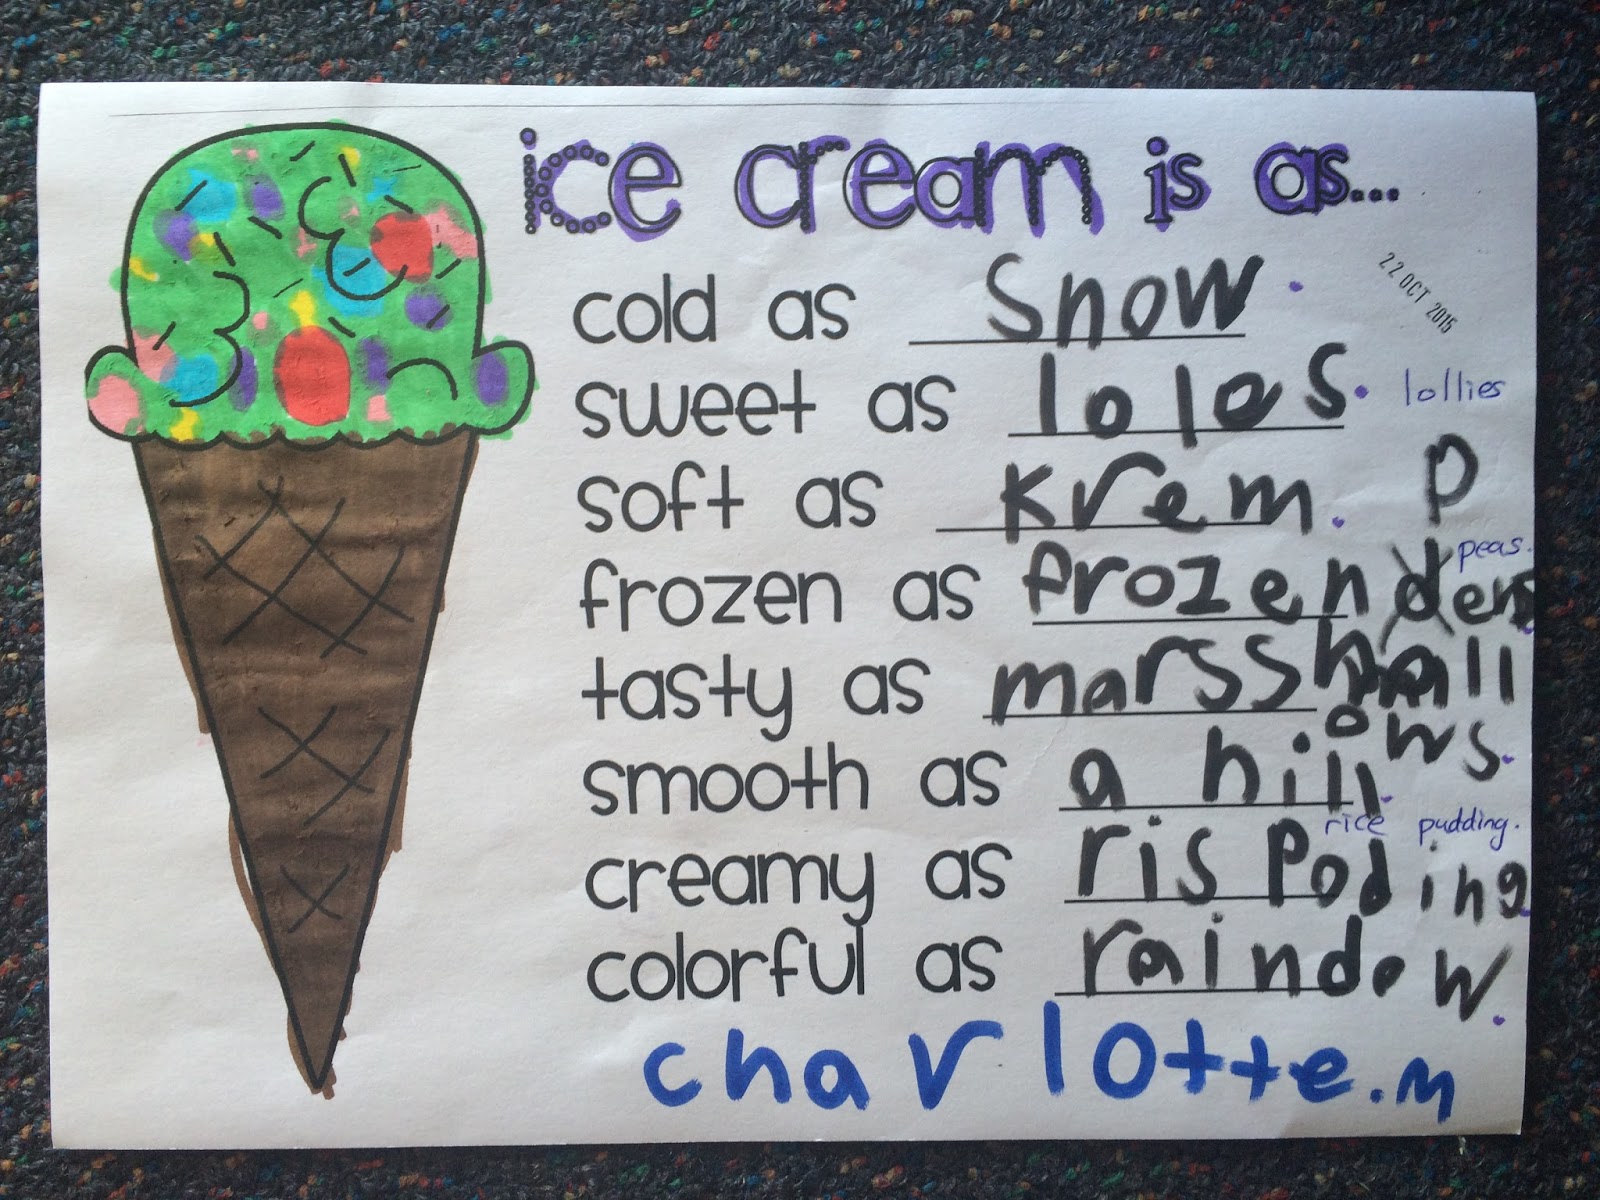 ice cream is as...
22 OCT 2015
cold as Snow.
sweet as loles. lollies
soft as krem. p
peas.
frozen as frozen dens
tasty as marsshall
ows.
smooth as a hill.
rice pudding.
creamy as ris Poding.
colorful as raindow.
charlotte.m